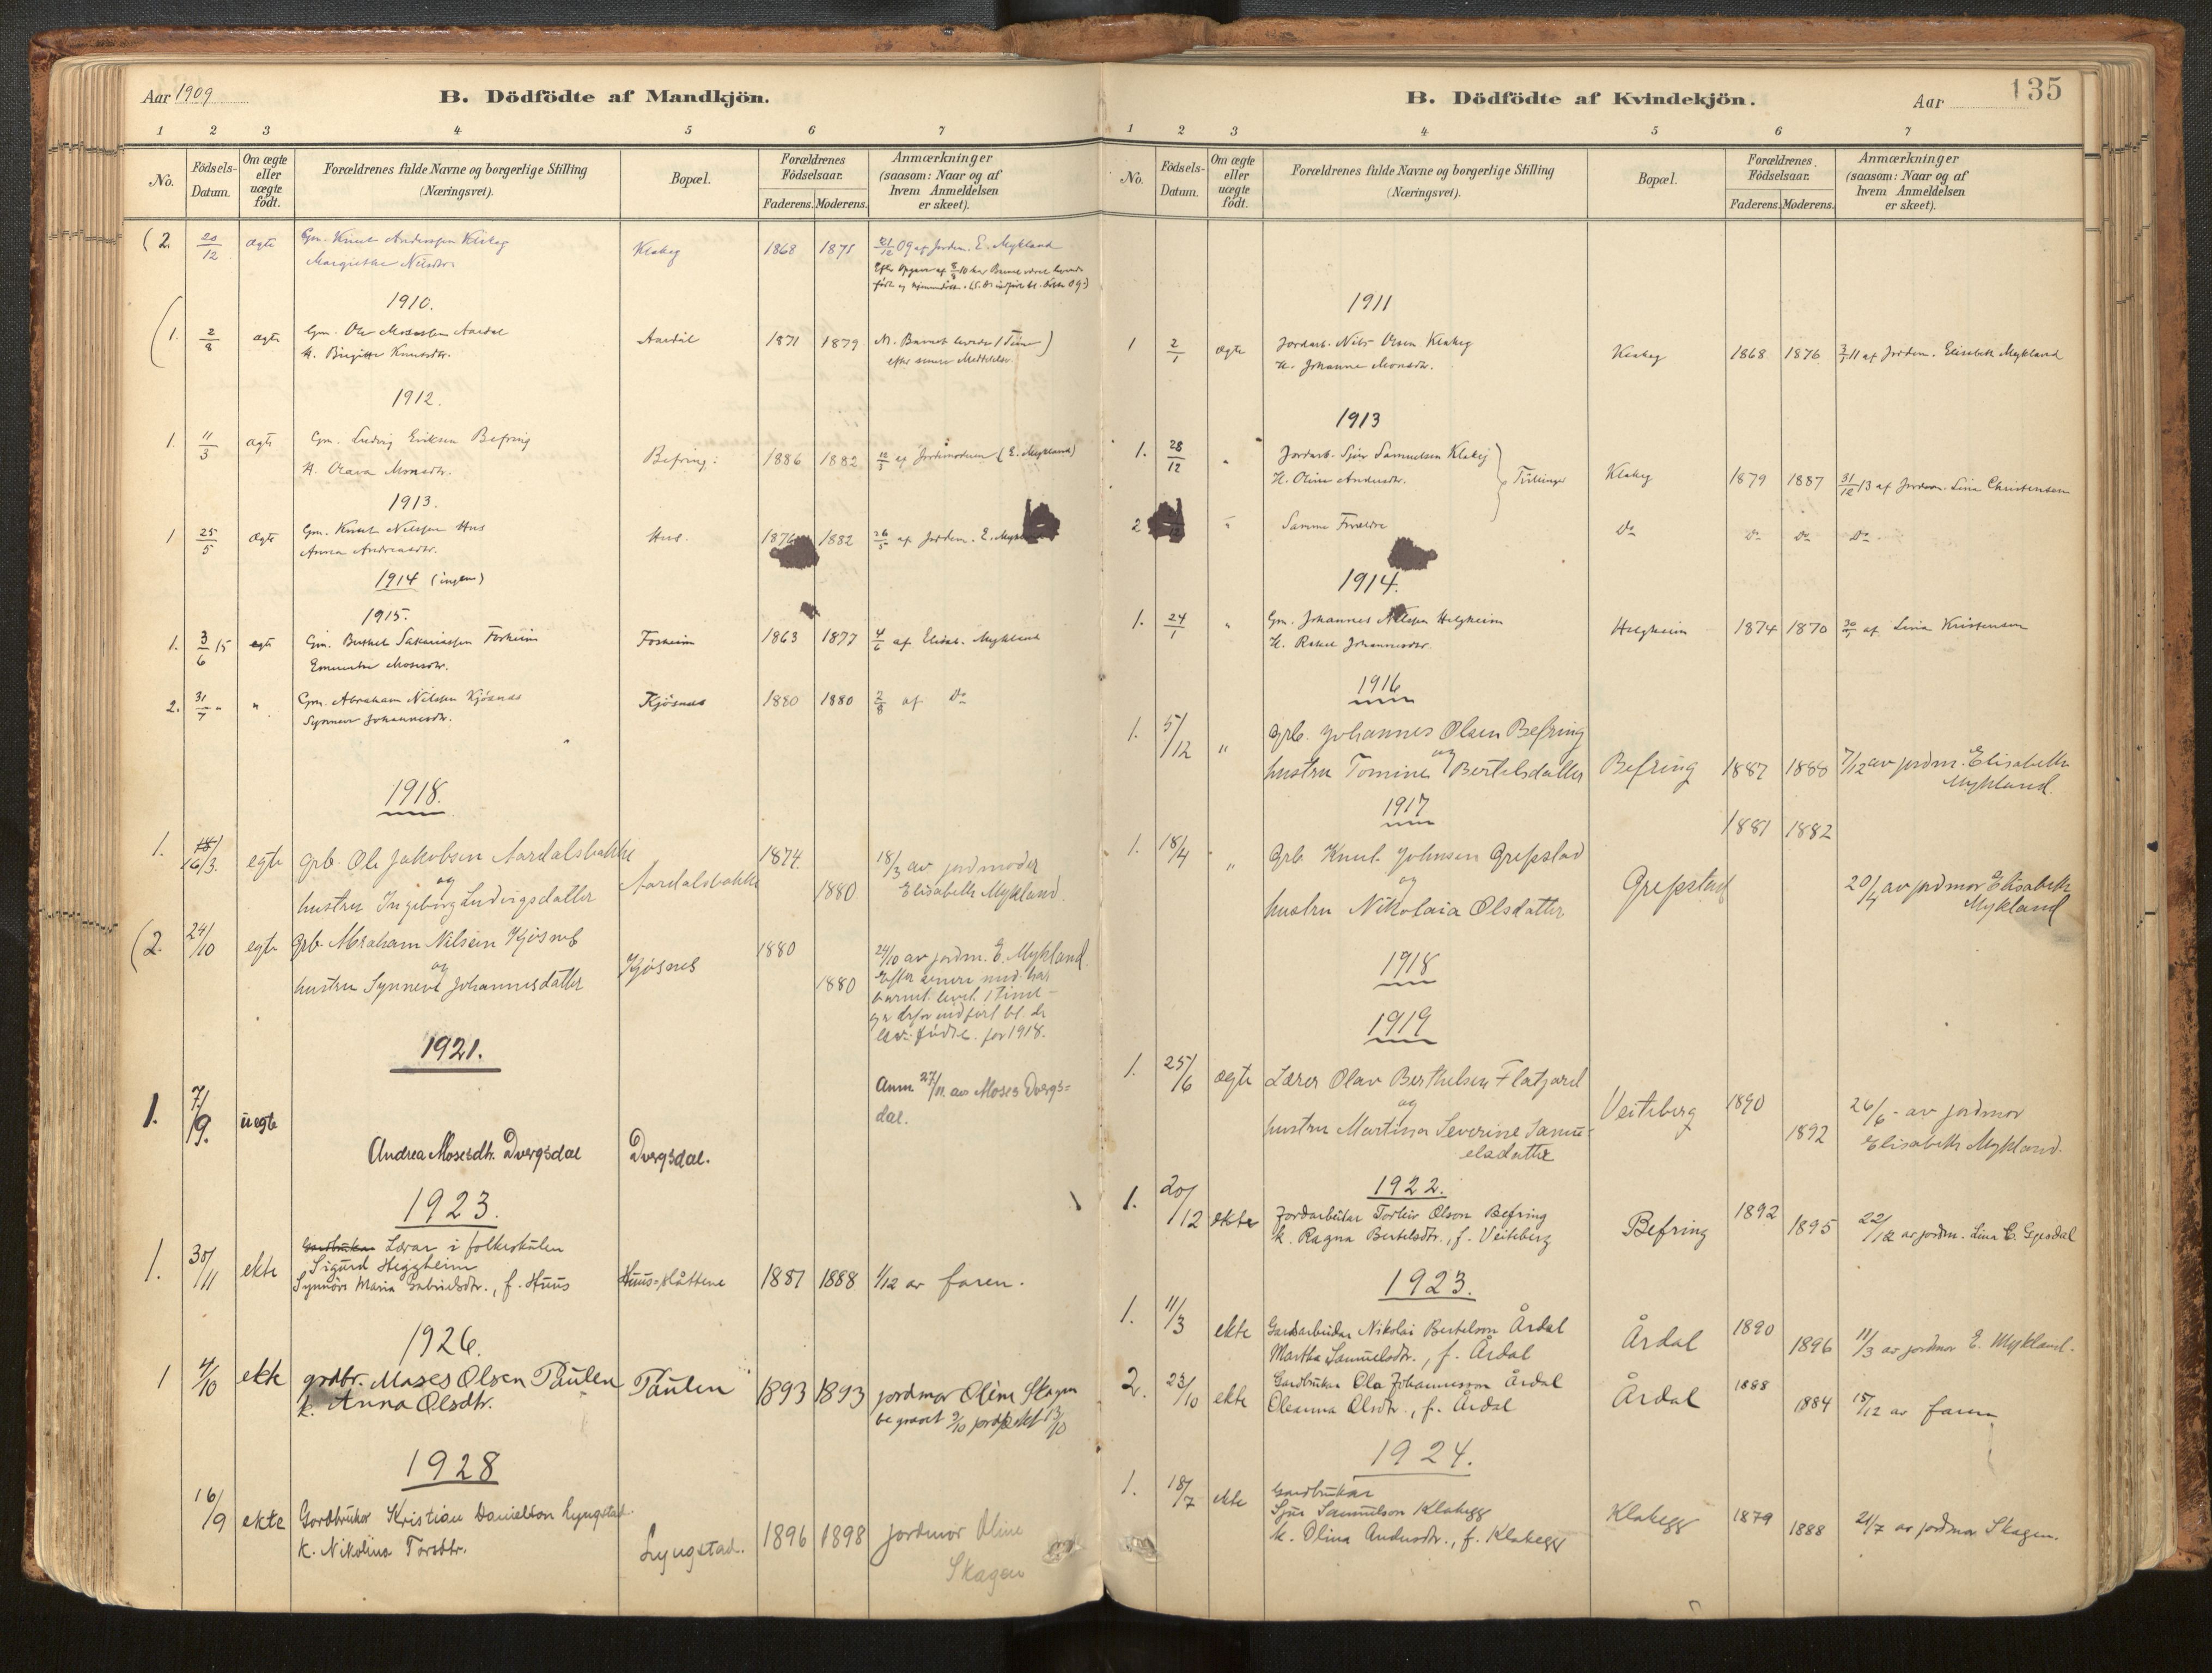 Aar 1909
B. Dödfödte af Mandkjön.
1 2 3 4 5 6 7
No.
Födsels-Datum.
Om ægte eller uægte födt.
Forældrenes fulde Navne og borgerlige Stilling
(Næringsvei).
Bopæl.
Forældrenes Födselsaar.
Faderens. Moderens.
Anmærkninger
(saasom: Naar og af
hvem Anmeldelsen
er skeet).
(2. 20/12 ægte Gm. Knut Anderssen Klakeg Klakeg 1868 1875 21/12 09 af Jordm. E. Mykland
Margrethe Nilsdtr.
1910.
(1. 2/8 ægte Gm. Ole Mosessen Aardal Aardal 1871 1879 M. Barnet levede 1 Time)
H. Birgitte Knutsdtr. efter senere Meddelelse
1912.
1. 11/3 ægte Gm. Ludvig Eriksen Befring Befring: 1886 1882 12/3 af Jordemoderen (E. Mykland)
H. Olava Monsdtr.
1913.
1 25/5 ægte Gm. Knut Nilssen Hus Hus. 1876 1882 26/5 af Jordem. E.
Anna Andreasdtr.
1914 (ingen)
1915.
1. 3/6 15 egte Gm. Berthel Sakariassen Forheim Forheim 1863 1877 4/6 af Elisab. Mykland
Mosesdtr.
2. 31/7 " " Gm. Abraham Nilssen Kjösnes Kjösnes 1880 1880 2/8 af Do
Synneve Johannesdtr.
1918.
1. 16/3. egte grb. Ole Jakobsen Aardalsbakke Aardalsbakke 1874 1880 18/3 av jordmoder
og
hustru Ingeborg Ludvigsdatter Elisabeth Mykland.
(2. 24/10 egte grb. Abraham Nilsen Kjøsnes Kjøsnes 1880 1880 24/10 av jordm. E. Mykland.
og
hustru Synneve Johannesdatter
Efter senere med. har
barnet levet 1 time -
og er derfor indført bl. de
lev. fødte for 1918.
1921.
1. 7/9. uegte Anm 27/11. av Moses Dvergs=
dal.
Andrea Mosesdtr. Dvergsdal Dvergsdal.
1923.
1. 30/11 ekte Gardbrukar Lærar i folkeskulen
Sigurd Heggheim
Synnöve Maria Gabrielsdtr., f. Huus Huus-slåttene 1887 1888 1/12 av faren.
1926.
1 4/10 ekte grdbr. Moses Olsen Paulen Paulen 1893 1893 jordmor Oline Skagen
k. Anna Olsdtr. begravet 9/10 jordpåkf 13/10
1928
16/9 ekte Gardbrukar Kristian Danielson Lyngstad. Lyngstad. 1896 1898 jordmor Oline
k. Nikolina Torsdtr. Skagen
135
B. Dödfödte af Kvindekjön.
Aar
1 2 3 4 5 6 7
No.
Födsels-Datum.
Om ægte eller uægte födt.
Forældrenes fulde Navne og borgerlige Stilling
(Næringsvei).
Bopæl.
Forældrenes Födselsaar.
Faderens. Moderens.
Anmærkninger
(saasom: Naar og af
hvem Anmeldelsen
er skeet).
1911
1 2/1 ægte Jordarb. Nils Olsen Klakeg Klakeg 1868 1876 3/1 11 af Jordem. Elisabeth Mykland
H. Johanne Monsdtr.
1913
1. 28/12 " Jordarb. Sjur Samuelsen Klakeg Tvillinger Klakeg 1879 1887 31/12 13 af Jordem. Lina Christensen
H. Olina Andersdtr.
2 " Samme Forældre Do Do Do Do
1914.
1. 24/1 " Gm. Johannes Nilssen Helgheim Helgheim 1874 1870 af Lina Kristensen
H. Rakel Johannesdtr.
1916
1. 5/12 " grb. Johannes Olsen Befring
og
hustru Tomine Bertelsdatter Befring 1887 1888 7/12 av jordm. Elisabeth
Mykland.
1917
1881 1882
1. 18/4 " Grb Knut Johnsen Grepstad
og
hustru Nikolaia Olsdatter Grepstad 20/4 av jordmor Elisabeth
Mykland
1918
1919
1. 25/6 ægte Lærer Olav Berthelsen Flatjord
og
hustru Martina Severine Samu=
elsdatter Veiteberg 1890 1892 26/6 - av jordmor
Elisabeth Mykland.
1922.
1. 20/12 ekte Jordarbeidar Torleiv Olson Befring Befring 1892 1895 22/12 av jordm. Lina C.
k. Ragna Bertelsdtr., f. Veiteberg
1923.
1. 11/3 ekte Gardsarbeidar Nikolai Bertelson Årdal Årdal 1890 1896 11/3 av jordmor E. Mykland.
Martha Samuelsdtr., f. Årdal
2. 23/10 ekte Gardbrukar Ola Johannesson Årdal Årdal 1888 1884 15/12 av faren
Oleanna Olsdtr., f. Årdal
1924.
1. 18/7 ekte Gardbrukar
Sjur Samuelson Klakegg Klakegg 1879 1888 21/7 av jordmor Skagen.
k. Olina Andersdtr., f. Klakegg